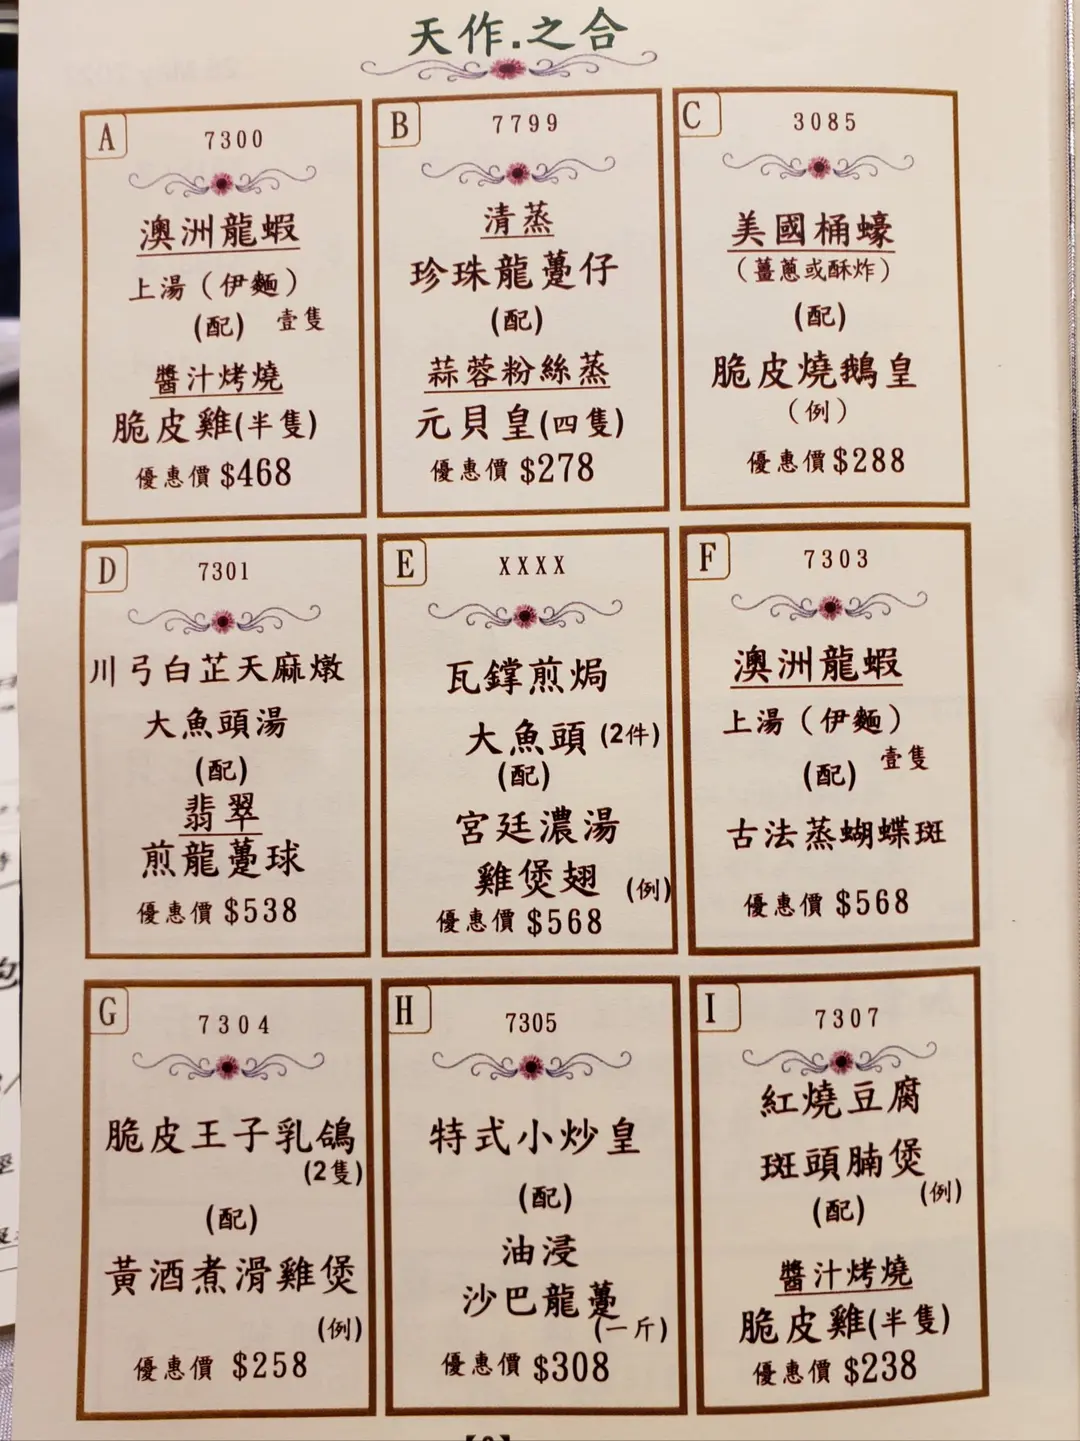 天作.之合
A
7300
澳洲龍蝦
上湯（伊麵）
(配) 壹隻
醬汁烤燒
脆皮雞(半隻)
優惠價 $468
B
7799
清蒸
珍珠龍躉仔
(配)
蒜蓉粉絲蒸
元貝皇(四隻)
優惠價 $278
C
3085
美國桶蠔
（薑蔥或酥炸）
(配)
脆皮燒鵝皇
（例）
優惠價 $288
D
7301
川弓白芷天麻燉
大魚頭湯
(配)
翡翠
煎龍躉球
優惠價 $538
E
XXXX
瓦鐣煎焗
大魚頭 (2件)
(配)
宮廷濃湯
雞煲翅 (例)
優惠價 $568
F
7303
澳洲龍蝦
上湯（伊麵）
(配) 壹隻
古法蒸蝴蝶斑
優惠價 $568
G
7304
脆皮王子乳鴿
(2隻)
(配)
黃酒煮滑雞煲
(例)
優惠價 $258
H
7305
特式小炒皇
(配)
油浸
沙巴龍躉
(一斤)
優惠價 $308
I
7307
紅燒豆腐
斑頭腩煲
(配) (例)
醬汁烤燒
脆皮雞(半隻)
優惠價 $238